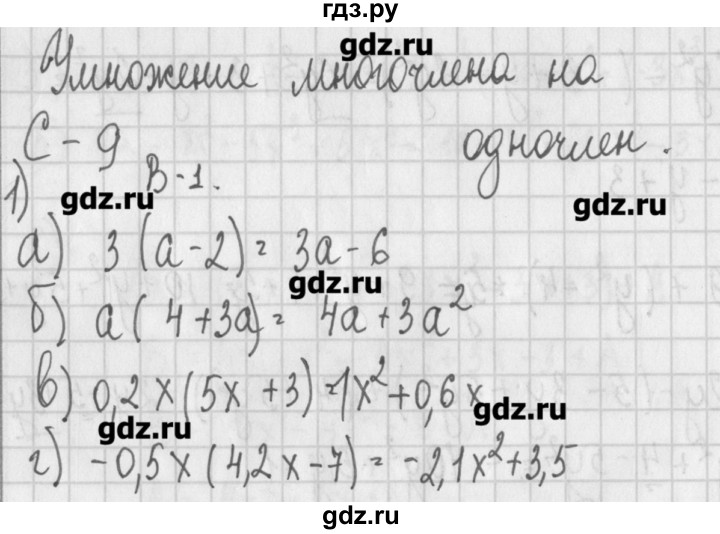 гдз.ру
gdz.ru
Умножение многочлена на
С-9 одночлен.
1) В-1.
gdz.ru gdz.ru
а) 3(а-2)= 3а-6
gdz.ru
б) а(4+3а)= 4а+3а²
в) 0,2х(5х+3)=1х²+0,6х
gdz.ru gdz.ru
г) -0,5х(4,2х-7)=-2,1х²+3,5
gdz.ru